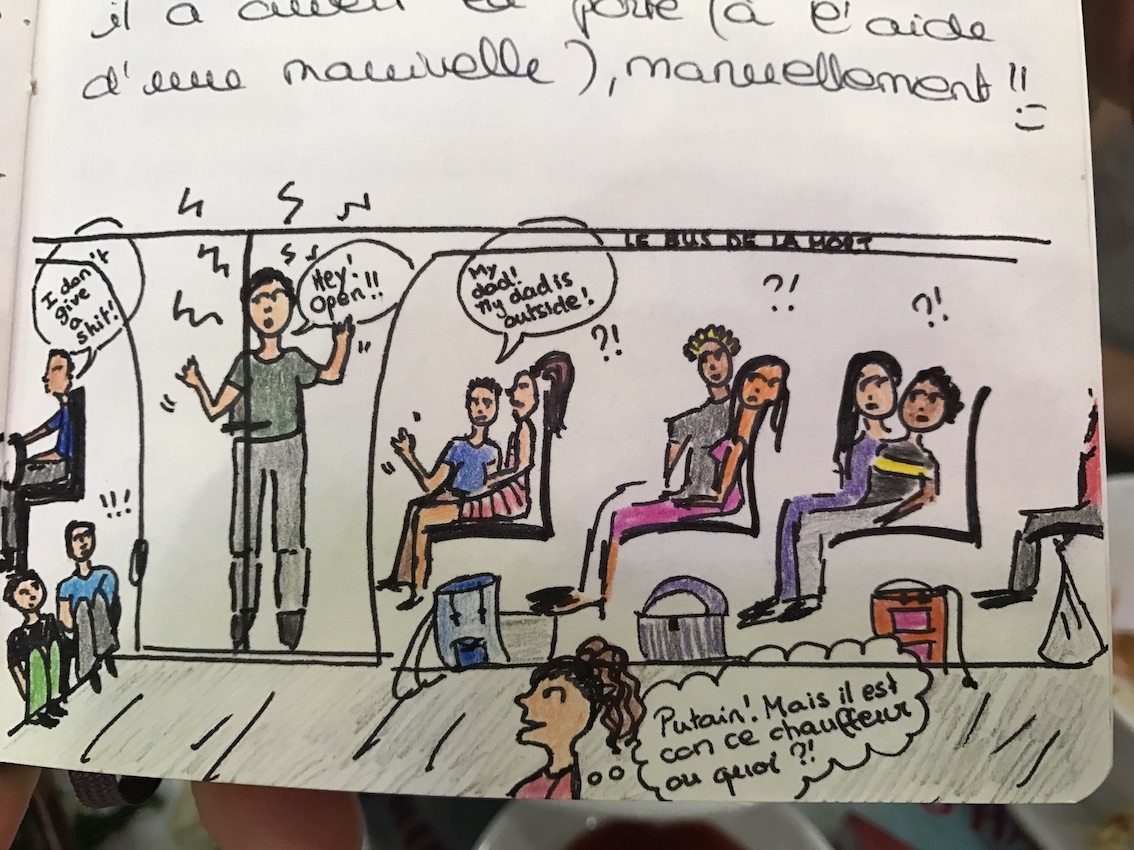 il a ouvert la porte (à l'aide
d'une manivelle), manuellement!!
:)
LE BUS DE LA MORT
I don't
give
a
shit!
Hey!
Open!!
My
dad!
My dad is
outside!
?!
?!
?!
!!!
Putain! Mais il est
con ce chauffeur
ou quoi ?!